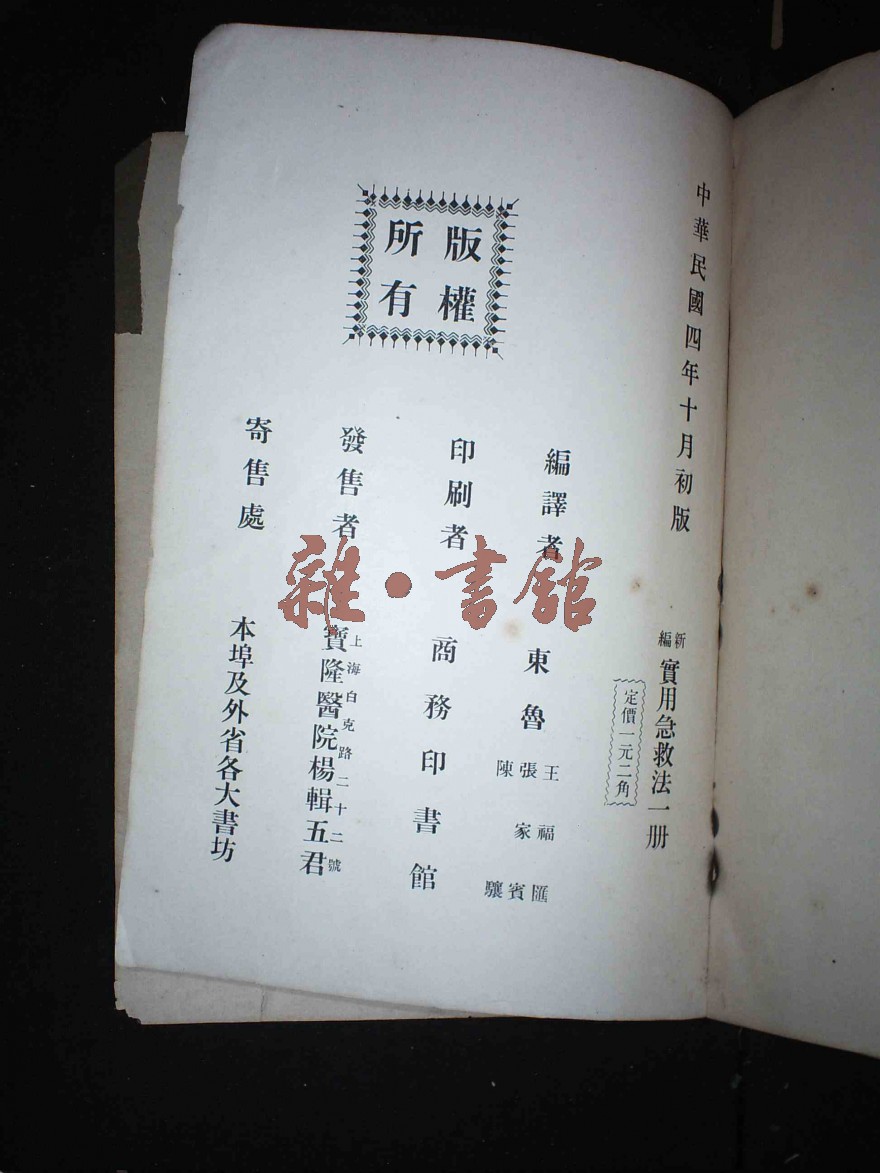 中華民國四年十月初版
新編實用急救法一册
定價一元二角
版權所有
編譯者
東魯
王福匯
張家賓
陳驤
印刷者
商務印書館
發售者
上海白克路二十二號
寶隆醫院楊輯五君
寄售處
本埠及外省各大書坊
雜·書舘